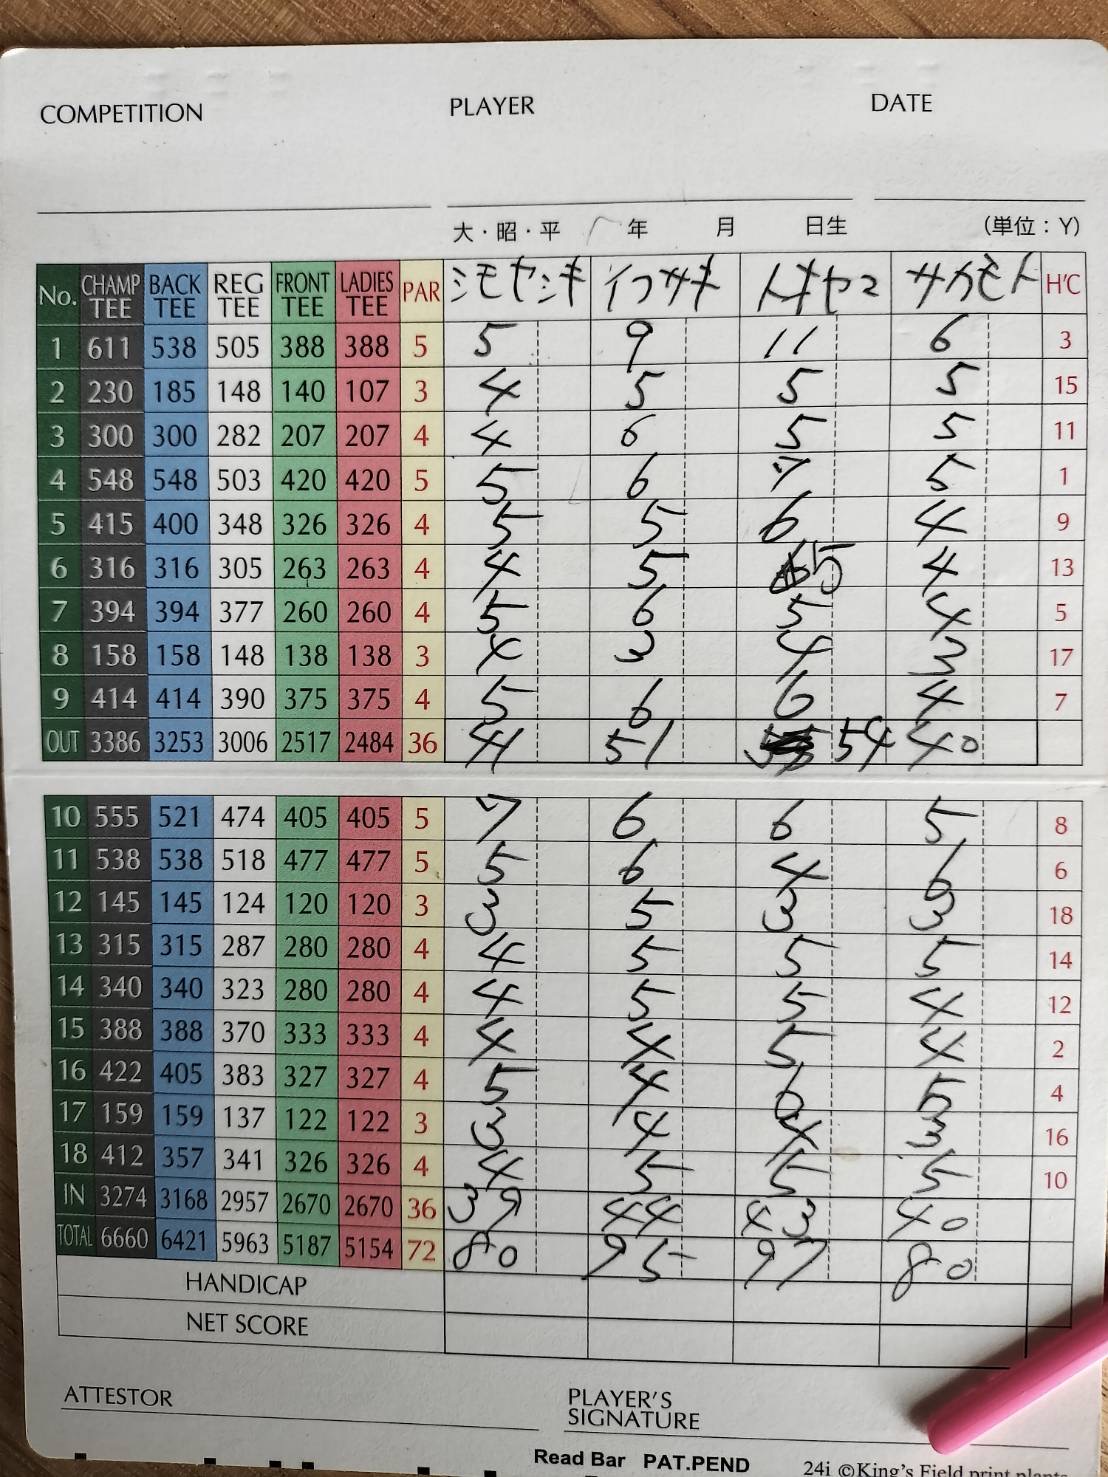 COMPETITION PLAYER DATE
大・昭・平 年 月 日生 (単位：Y)
No. CHAMP TEE BACK TEE REG TEE FRONT TEE LADIES TEE PAR シモヤシキ イワサキ トキヤマ サカモト H'C
1 611 538 505 388 388 5 5 9 11 6 3
2 230 185 148 140 107 3 4 5 5 5 15
3 300 300 282 207 207 4 4 6 5 5 11
4 548 548 503 420 420 5 5 6 7 5 1
5 415 400 348 326 326 4 5 5 6 4 9
6 316 316 305 263 263 4 4 5 5 4 13
7 394 394 377 260 260 4 5 6 5 4 5
8 158 158 148 138 138 3 4 3 4 3 17
9 414 414 390 375 375 4 5 6 6 4 7
OUT 3386 3253 3006 2517 2484 36 41 51 54 40
10 555 521 474 405 405 5 7 6 6 5 8
11 538 538 518 477 477 5 5 6 4 6 6
12 145 145 124 120 120 3 3 5 3 3 18
13 315 315 287 280 280 4 4 5 5 5 14
14 340 340 323 280 280 4 4 5 5 4 12
15 388 388 370 333 333 4 4 4 5 4 2
16 422 405 383 327 327 4 5 4 6 5 4
17 159 159 137 122 122 3 3 4 4 3 16
18 412 357 341 326 326 4 4 5 5 5 10
IN 3274 3168 2957 2670 2670 36 39 44 43 40
TOTAL 6660 6421 5963 5187 5154 72 80 95 97 80
HANDICAP
NET SCORE
ATTESTOR PLAYER'S SIGNATURE
Read Bar PAT.PEND 24i ©King's Field print plants